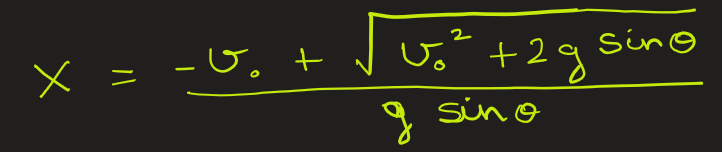 x = \frac{-v_0 + \sqrt{v_0^2 + 2g \sin\theta}}{g \sin\theta}